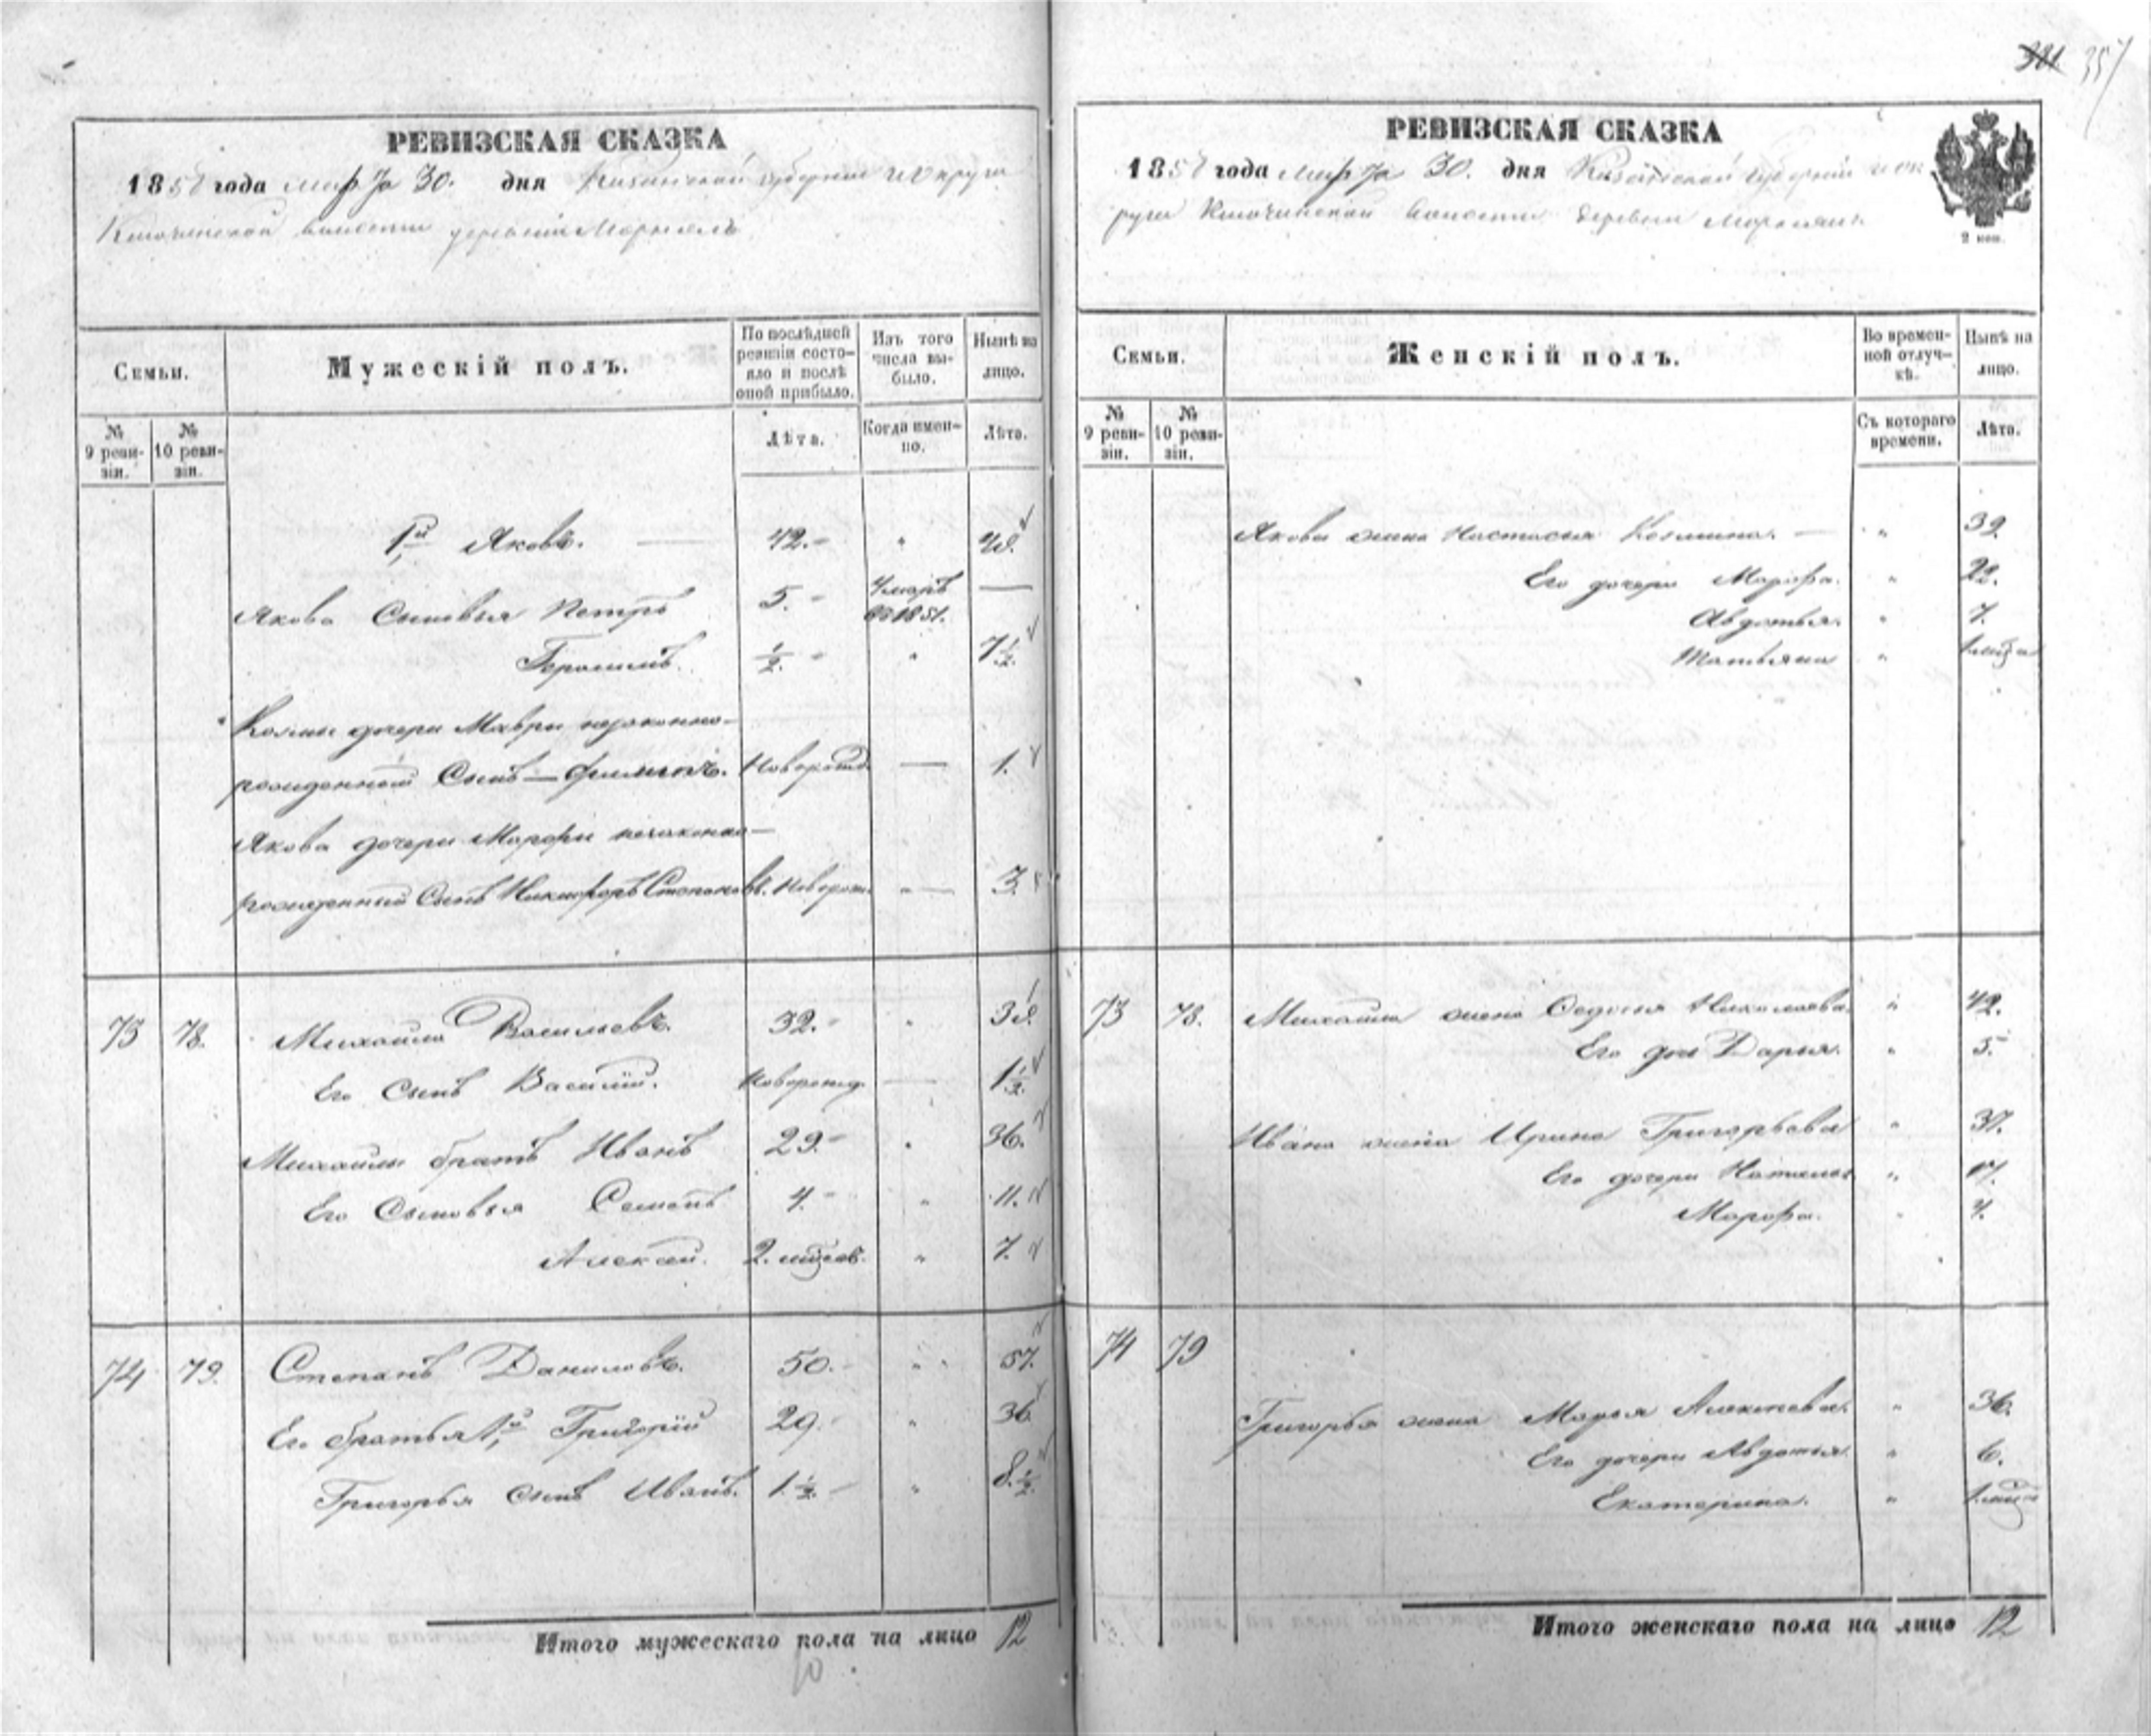 357
РЕВИЗСКАЯ СКАЗКА
1858 года Марта 30. дня Казанской губернии и округа
волости деревни
Семьи.
Мужескій полъ.
По послѣдней ревизіи состояло и послѣ оной прибыло.
Изъ того числа выбыло.
Нынѣ на лицо.
№ 9 ревизіи.
№ 10 ревизіи.
Лѣта.
Когда именно.
Лѣта.
1й Яковъ. 42. " 49.
Якова Сыновья Петръ 5. Умеръ въ 1851. —
Герасимъ. ½ " 7½.
Козмы дочери Мавры незаконно-
рожденный Сынъ — Филипъ. Новорожд. — 1.
Якова дочери Марфы незаконно-
рожденный Сынъ Никифоръ Степановъ. Новорож. " — 3.
73 78. Михайло Васильевъ. 32. " 39.
Его Сынъ Василій. Новорожд. — 1½.
Михайлы братъ Иванъ 29. " 36.
Его Сыновья Семенъ 4. " 11.
Алексей. 2. мѣсяц. " 7.
74 79. Степанъ Даниловъ. 50. " 57.
Его братья 1й Григорій 29. " 36.
Григорья сынъ Иванъ. 1½. " 8½.
Итого мужескаго пола на лицо 12
10
РЕВИЗСКАЯ СКАЗКА
1858 года Марта 30. дня Казанской губерніи и ок
руга волости деревни
2 коп.
Семьи.
Женскій полъ.
Во временной отлучкѣ.
Нынѣ на лицо.
№ 9 ревизіи.
№ 10 ревизіи.
Съ котораго времени.
Лѣта.
Якова жена Настасья Козмина. — " 39.
Его дочери Марфа. " 22.
Авдотья. " 7.
Татьяна " 1 мѣся
73 78. Михайлы жена Федосья Николаева. " 42.
Его дочь Дарья. " 5.
Ивана жена Ирина Григорьева " 37.
Его дочери Наталья " 17.
Марфа. " 4.
74 79
Григорья жена Марья Алексеева. " 36.
Его дочери Авдотья. " 6.
Екатерина. " 1. мѣся
Итого женскаго пола на лицо 12